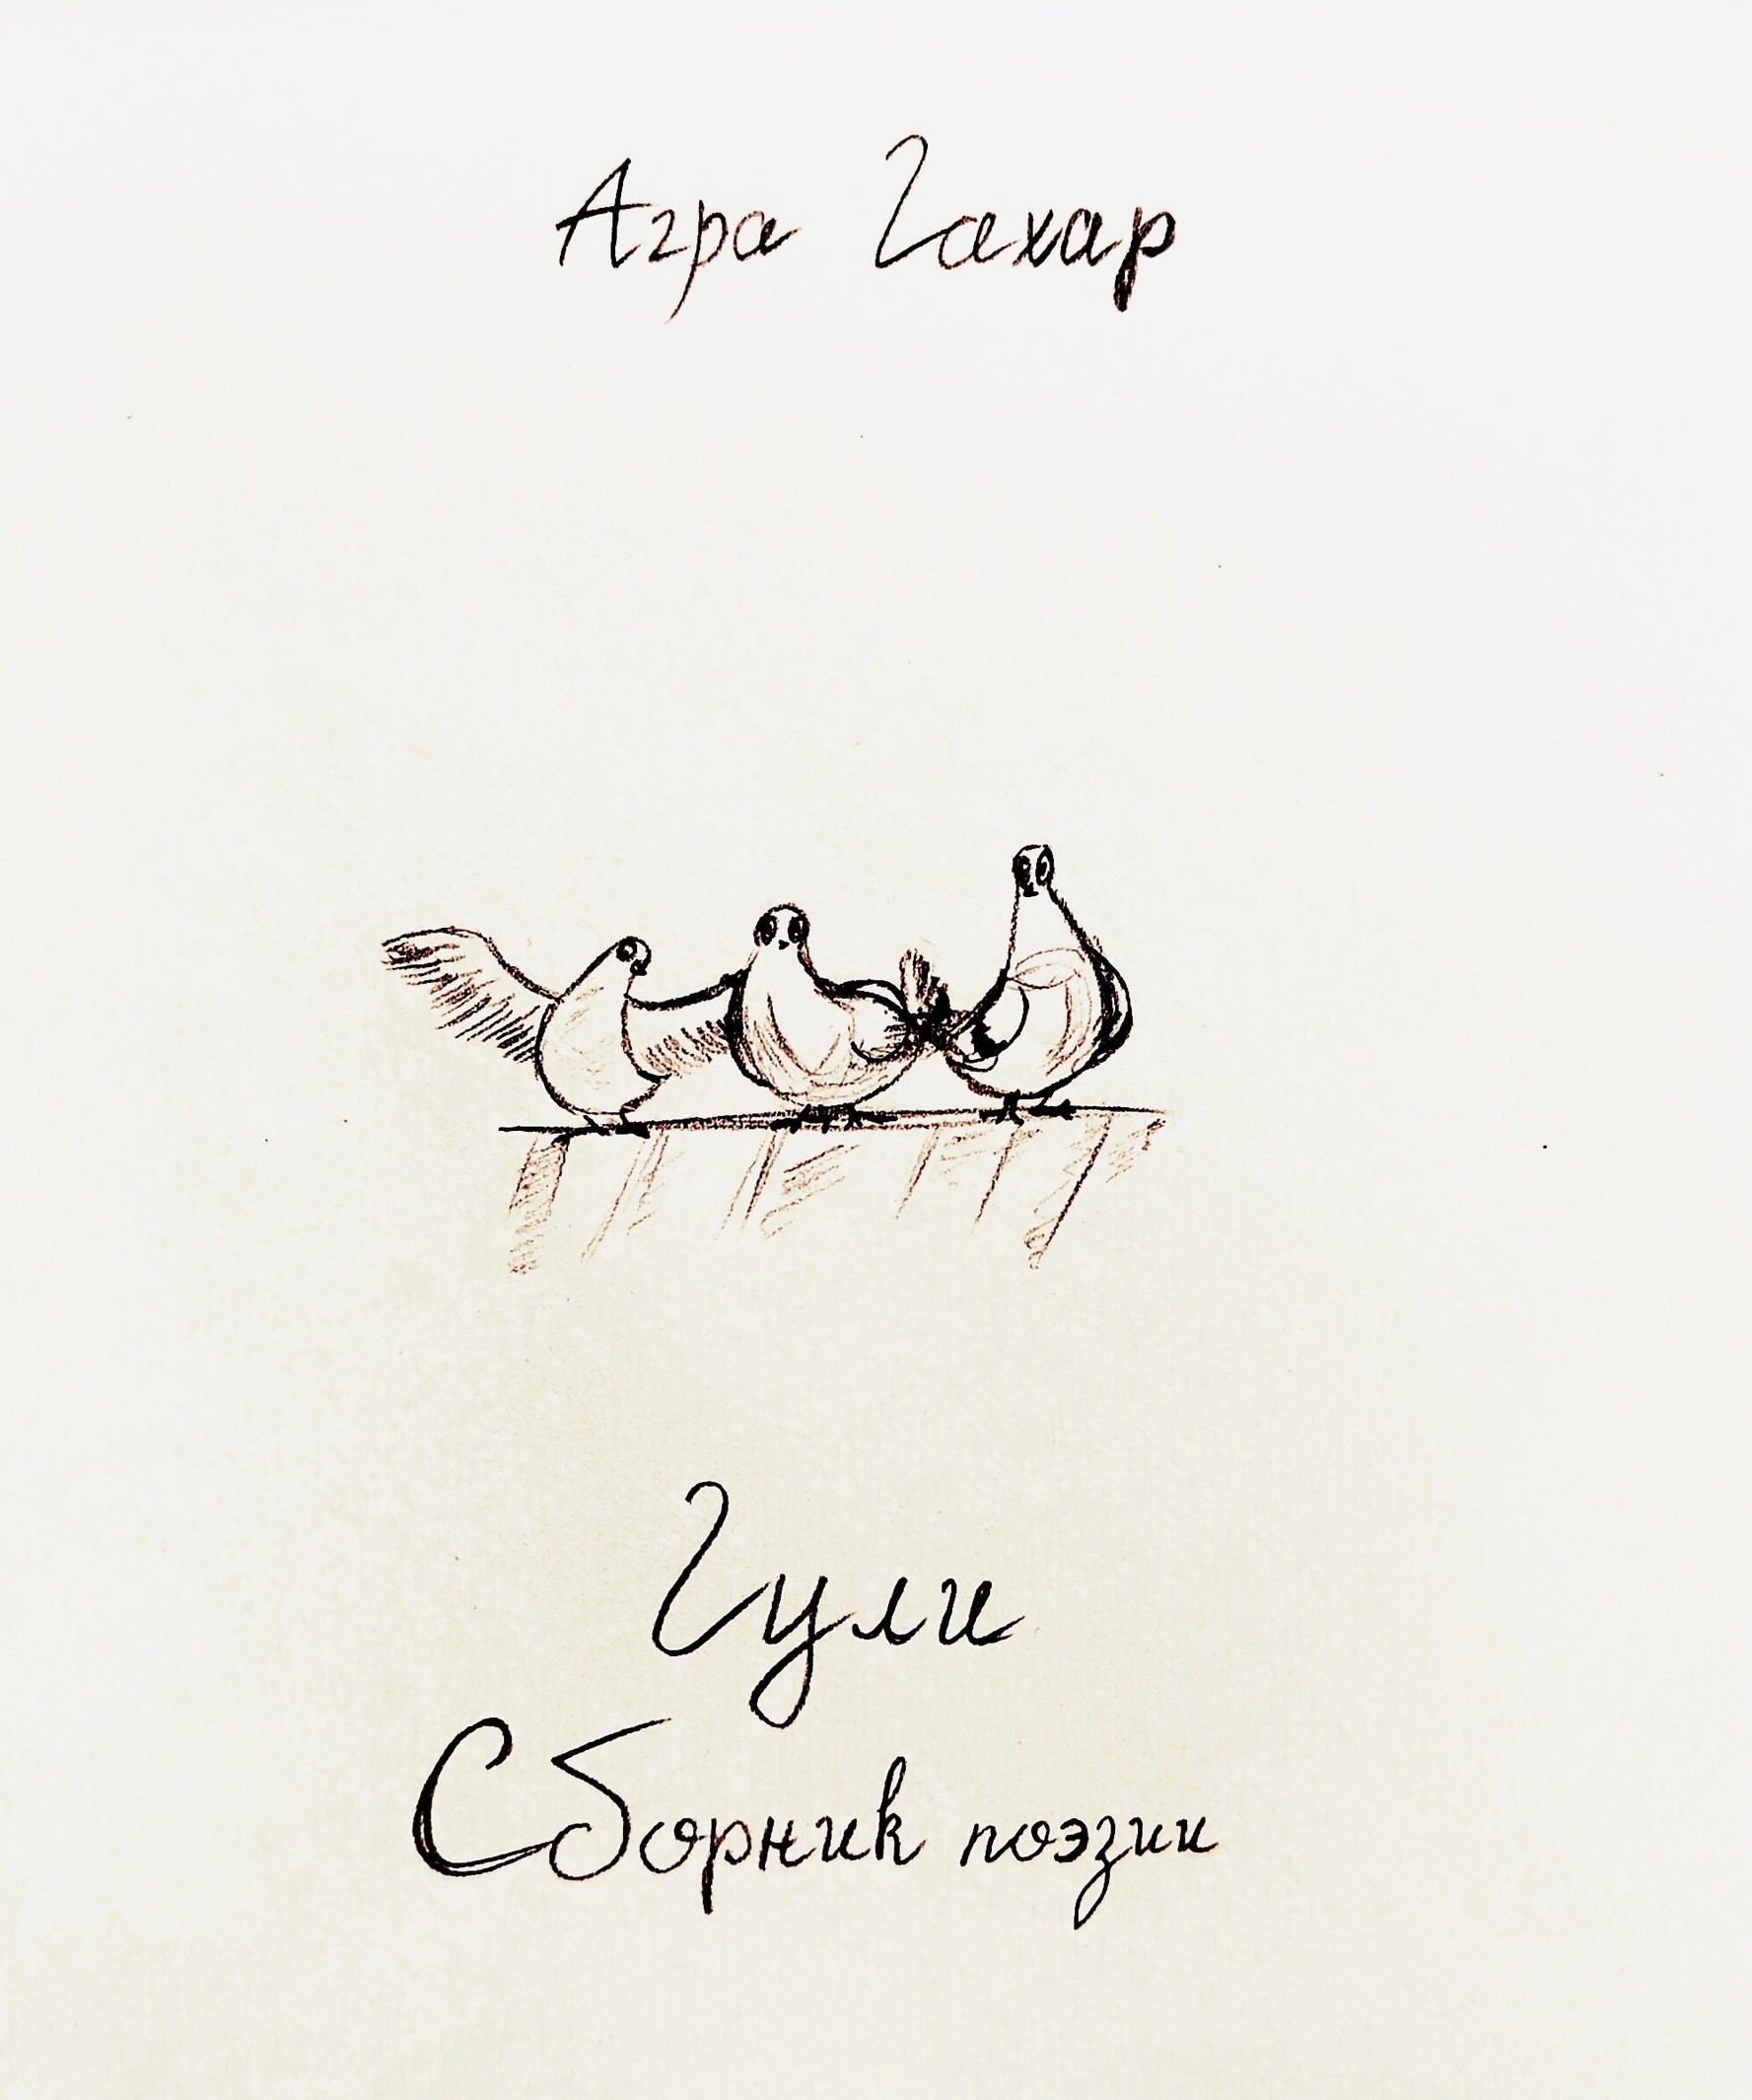 Агра Гахар
Гули
Сборник поэзии